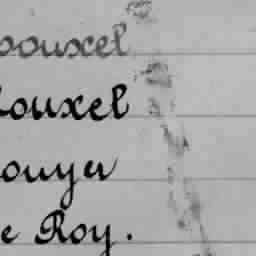 oouxel
Rouxel
ouyer
e Roy.